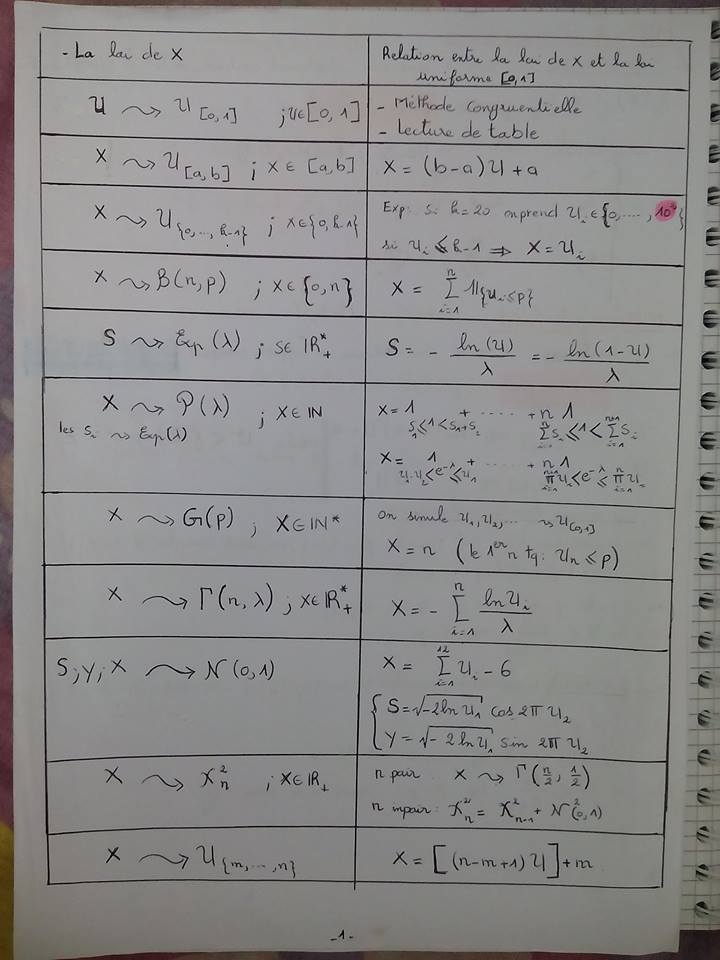 - La loi de X
Relation entre la loi de X et la loi
uniforme [0,1]
U ⤳ U[0,1] ; U∈[0,1]
- Méthode congruentielle
- Lecture de table
X ⤳ U[a,b] ; X ∈ [a,b]
X = (b-a)U + a
X ⤳ U{0,...,k-1} ; X∈{0,k-1}
Exp: Si k=20 on prend Ui ∈{0,....., 10²}
si Ui ≤ k-1 ⟹ X = Ui
X ⤳ B(n,p) ; X∈{0,n}
X = Σ_{i=1}^{n} 1{Ui ≤ p}
S ⤳ Exp(λ) ; S∈ IR*+
S = - ln(U)/λ = - ln(1-U)/λ
X ⤳ P(λ) ; X∈IN
les Si ⤳ Exp(λ)
X = 1_{S1≤1<S1+S2} + ..... + n 1_{Σ_{i=1}^{n} Si ≤ 1 < Σ_{i=1}^{n+1} Si}
X = 1_{U1.U2<e^{-λ}≤U1} + ...... + n 1_{Π_{i=1}^{n+1} Ui < e^{-λ} ≤ Π_{i=1}^{n} Ui}
X ⤳ G(p) ; X∈IN*
On simule U1, U2,... ⤳ U[0,1]
X = n (le 1er n tq: Un ≤ p)
X ⤳ Γ(n,λ) ; X∈IR*+
X = - Σ_{i=1}^{n} ln Ui/λ
S,Y,X ⤳ N(0,1)
X = Σ_{i=1}^{12} Ui - 6
{ S = √(-2 ln U1) cos 2π U2
Y = √(-2 ln U1) sin 2π U2
X ⤳ χ²n ; X∈IR+
n pair : X ⤳ Γ(n/2, 1/2)
n impair : χ²n = χ²n-1 + N²(0,1)
X ⤳ U{m,...,n}
X = [(n-m+1)U] + m
-1-